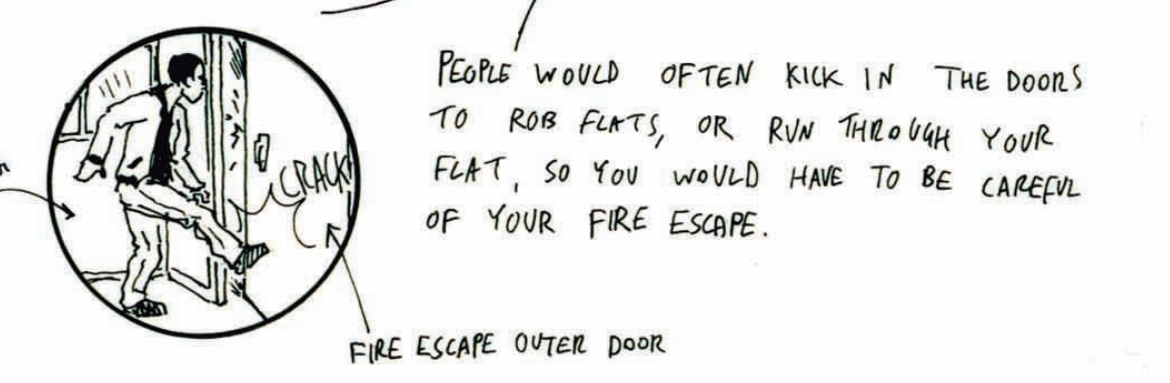 PEOPLE WOULD OFTEN KICK IN THE DOORS
TO ROB FLATS, OR RUN THROUGH YOUR
FLAT, SO YOU WOULD HAVE TO BE CAREFUL
OF YOUR FIRE ESCAPE.
CRACK
FIRE ESCAPE OUTER DOOR